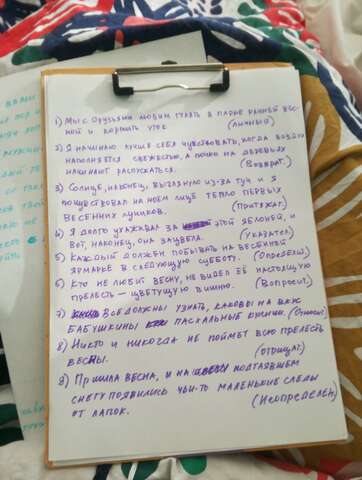 1) Мы с друзьями любим гулять в парке ранней вес-
ной и кормить уток. (личный)
2) Я начинаю лучше себя чувствовать, когда воздух
наполняется свежестью, а почки на деревьях
начинают распускаться. (Возврат.)
3) Солнце, наконец, выглянуло из-за туч и я
почувствовал на моем лице тепло первых
весенних лучиков. (Притяжат.)
4) Я долго ухаживал за этой яблоней, и
вот, наконец, она зацвела. (Указател.)
5) Каждый должен побывать на весенней
ярмарке в следующую субботу. (Определит.)
6) Кто не любит весну, не видел её настоящую
прелесть — цветущую вишню. (Вопросит.)
7) Все должны узнать, каковы на вкус
бабушкины пасхальные куличи. (Относит.)
8) Никто и никогда не поймет всю прелесть
весны. (Отрицат.)
9) Пришла весна, и на подтаявшем
снегу появились чьи-то маленькие следы
от лапок. (Неопределён.)